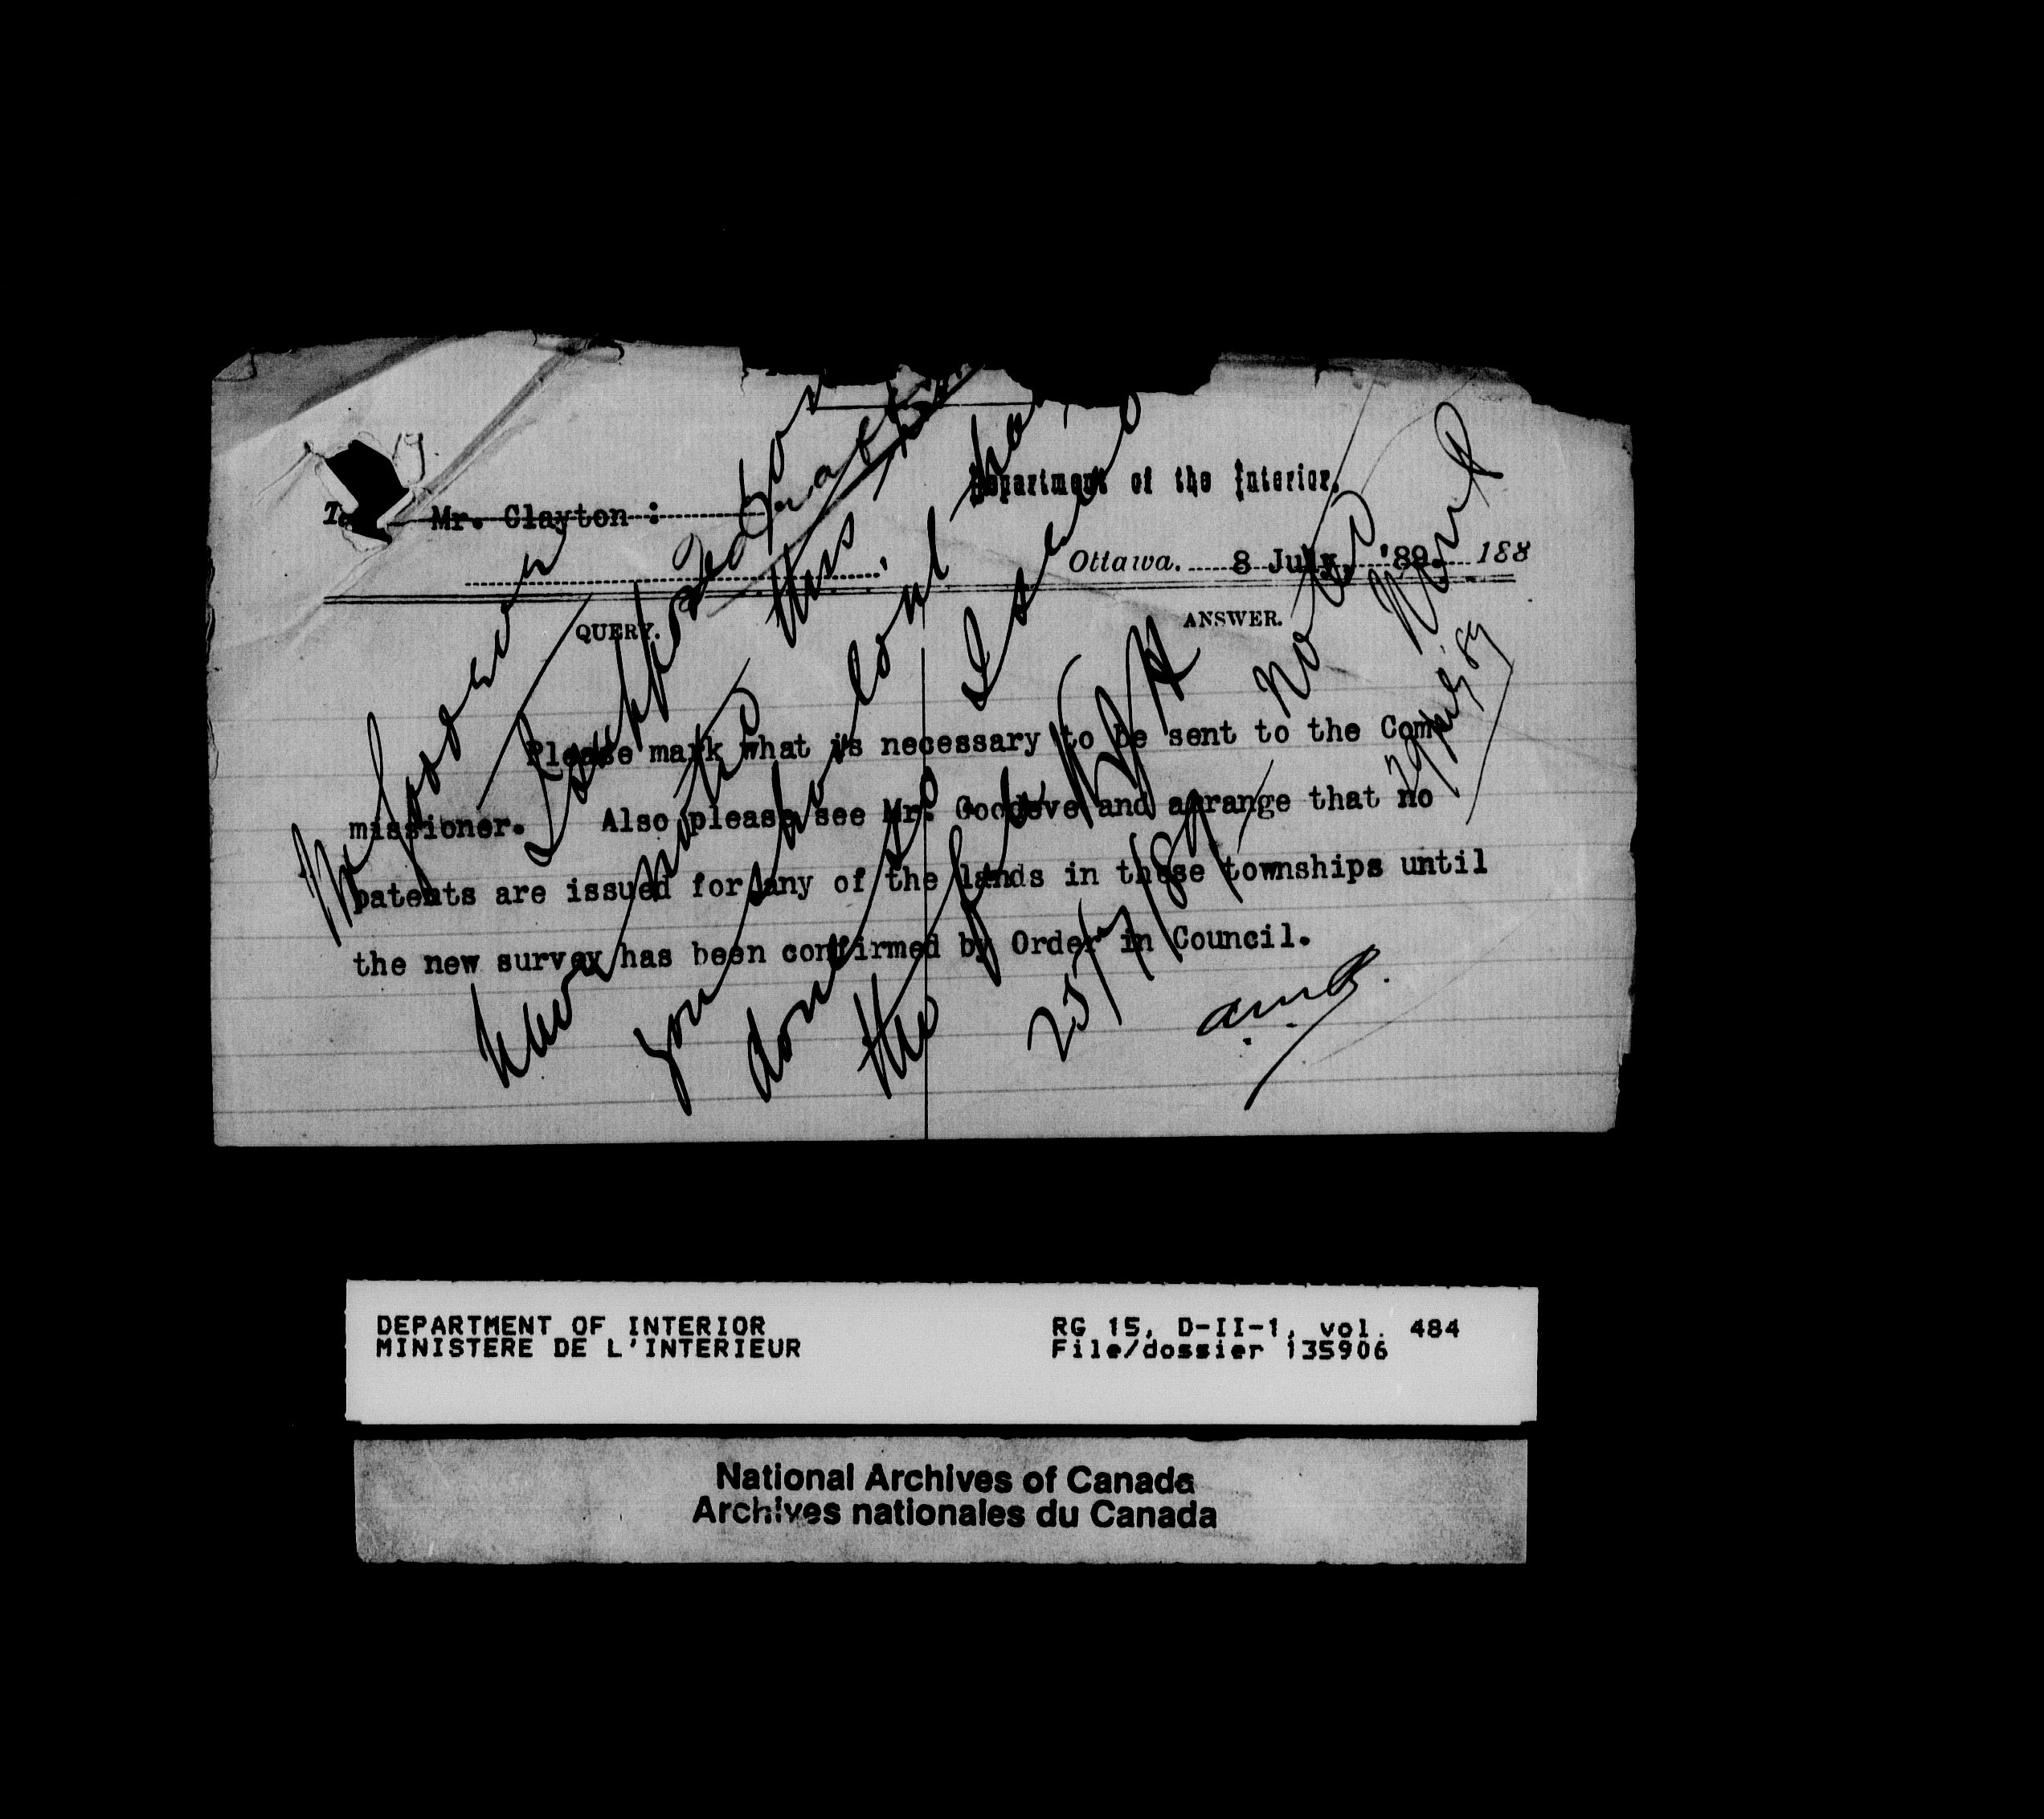 Department of the Interior.
To Mr. Clayton :
Ottawa. 8 July, '89. 188
QUERY.
ANSWER.
Please mark what is necessary to be sent to the Com-
missioner. Also please see Mr. Goodeve and arrange that no
patents are issued for any of the lands in these townships until
the new survey has been confirmed by Order in Council.
Mr Goodeve
I supposed
have noted this
you should
done so I send
the
25/7/89
Noted
29 July 89
DEPARTMENT OF INTERIOR
MINISTERE DE L'INTERIEUR
RG 15, D-II-1, vol. 484
File/dossier 135906
National Archives of Canada
Archives nationales du Canada